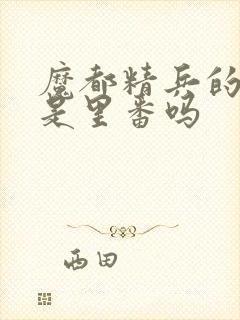 魔都精兵的
是里番吗
西田